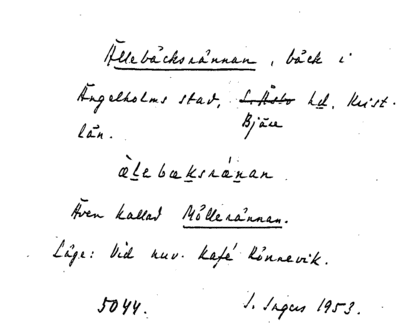 Ällebäcksrännan, bäck i
Ängelholms stad, S. Åsbo hd, Krist.
Bjäre
län.
ä̀l̲e bæk̲srǽn̲an
Även kallad Möllerännan.
Läge: Vid nuv. Kafé Rönnevik.
5044. S. Ingers 1953.